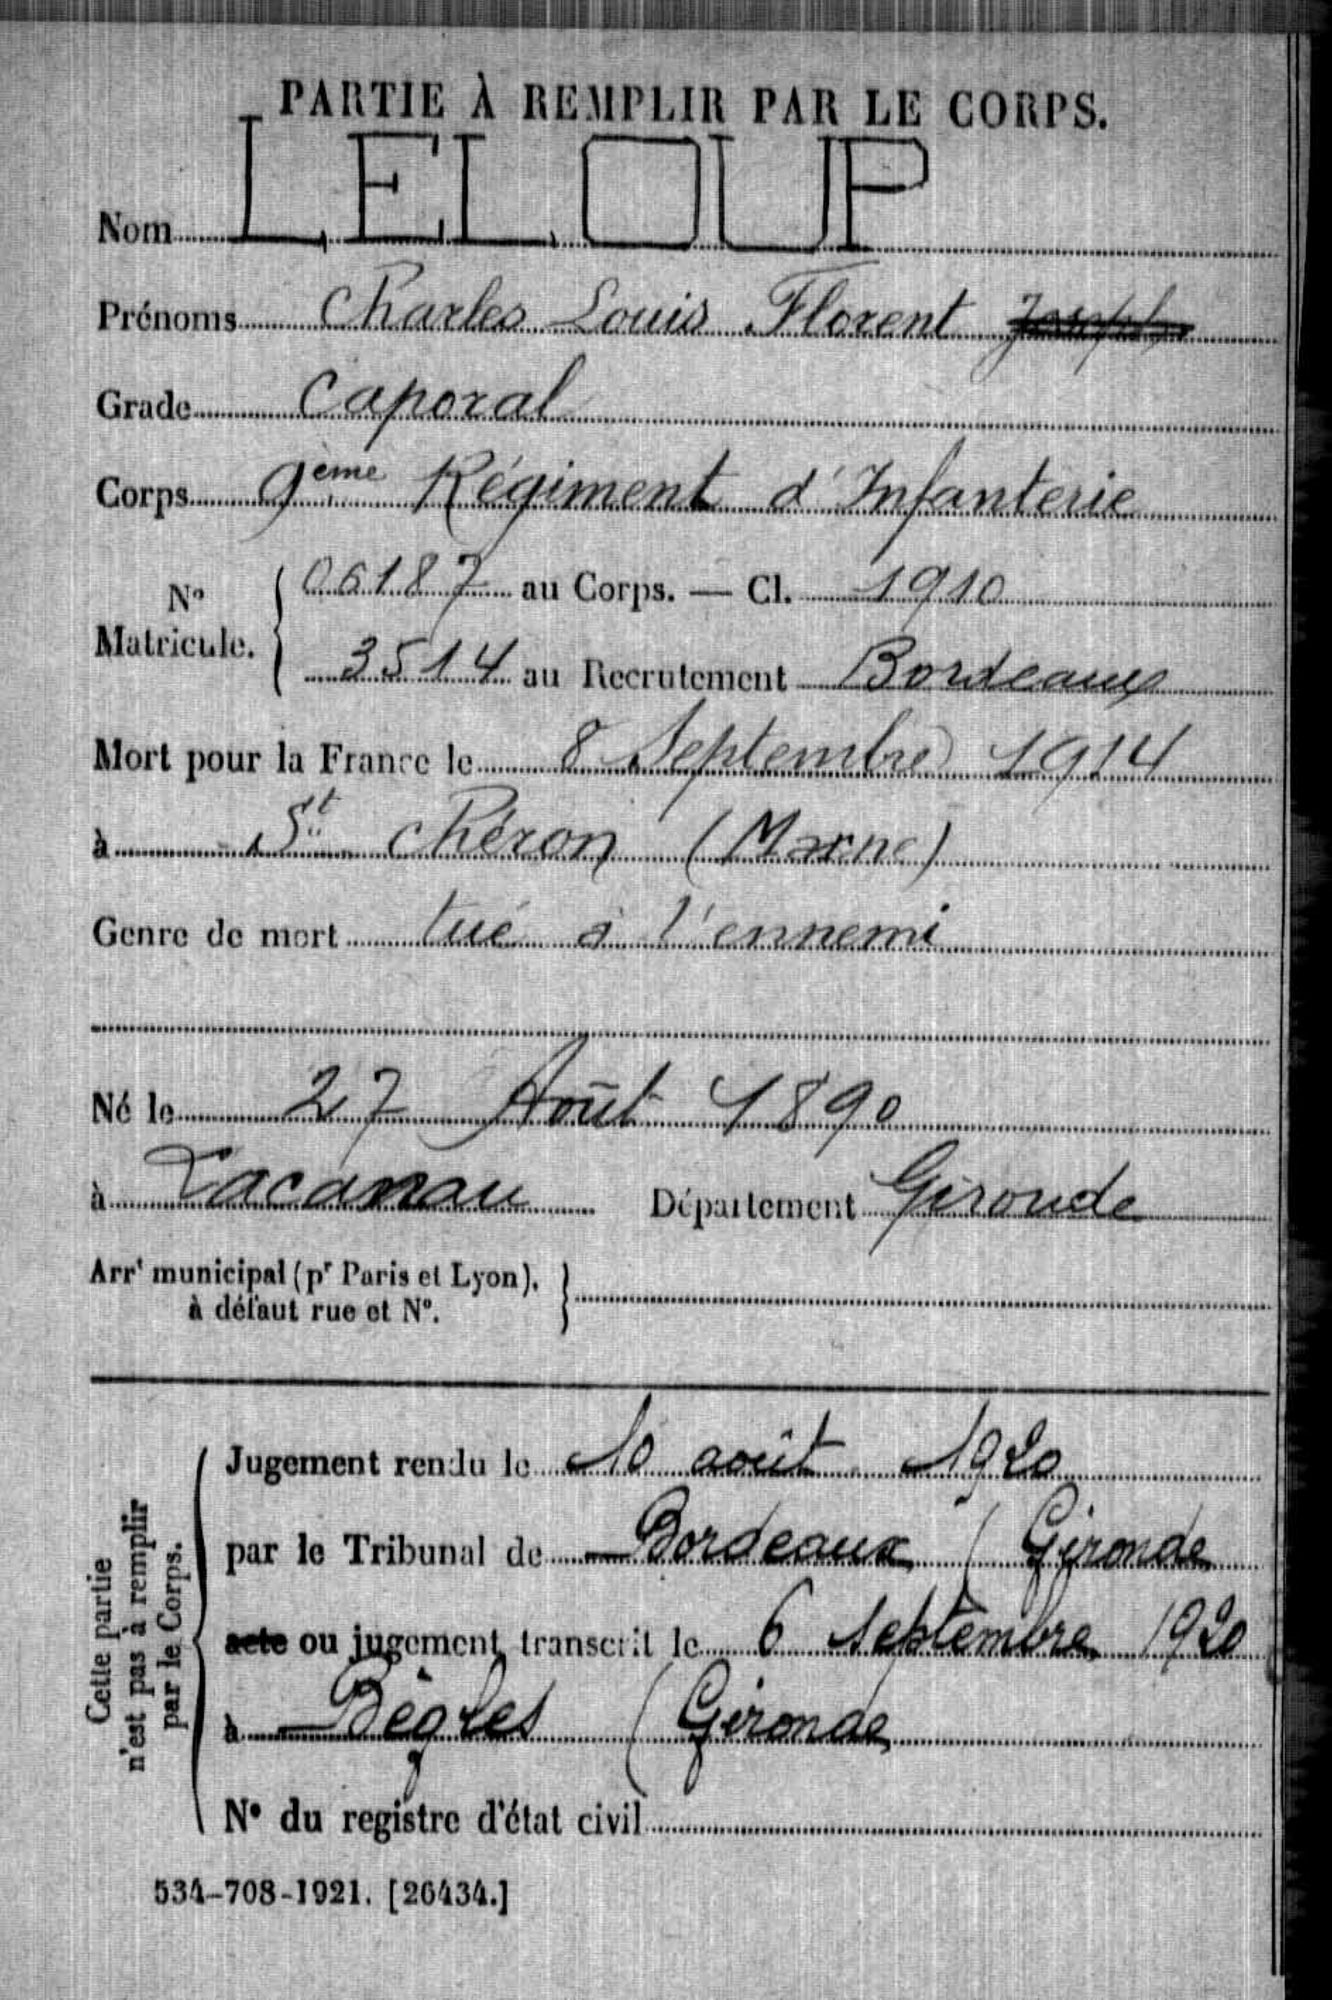 PARTIE À REMPLIR PAR LE CORPS.
Nom LELOUP
Prénoms Charles Louis Florent Joseph
Grade Caporal
Corps 9ème Régiment d'Infanterie
N° Matricule. 06187 au Corps. — Cl. 1910
3514 au Recrutement Bordeaux
Mort pour la France le 8 Septembre 1914
à St Chéron (Marne)
Genre de mort tué à l'ennemi
Né le 27 Août 1890
à Lacanau Département Gironde
Arrt municipal (pr Paris et Lyon),
à défaut rue et N°.
Cette partie
n'est pas à remplir
par le Corps.
Jugement rendu le 10 août 1920
par le Tribunal de Bordeaux (Gironde
acte ou jugement transcrit le 6 septembre 1920
à Bègles (Gironde
N° du registre d'état civil
534-708-1921. [26434.]